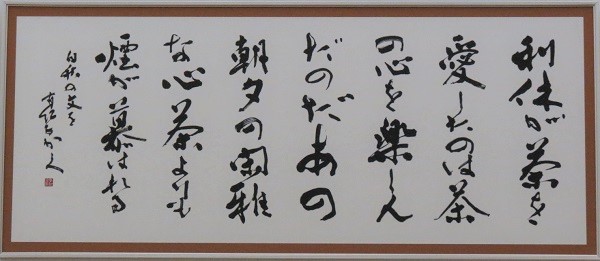 利休が茶を
愛したのは茶
の心を楽しん
だのだあの
朝夕の閑雅
な心茶よりも
煙が慕はれる
白秋の文を